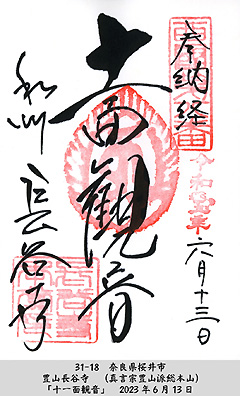 奉納経
令和五年
六月十三日
十一面観音
和州
長谷寺
31-18　奈良県桜井市
豊山長谷寺　（真言宗豊山派総本山）
「十一面観音」　2023年6月13日